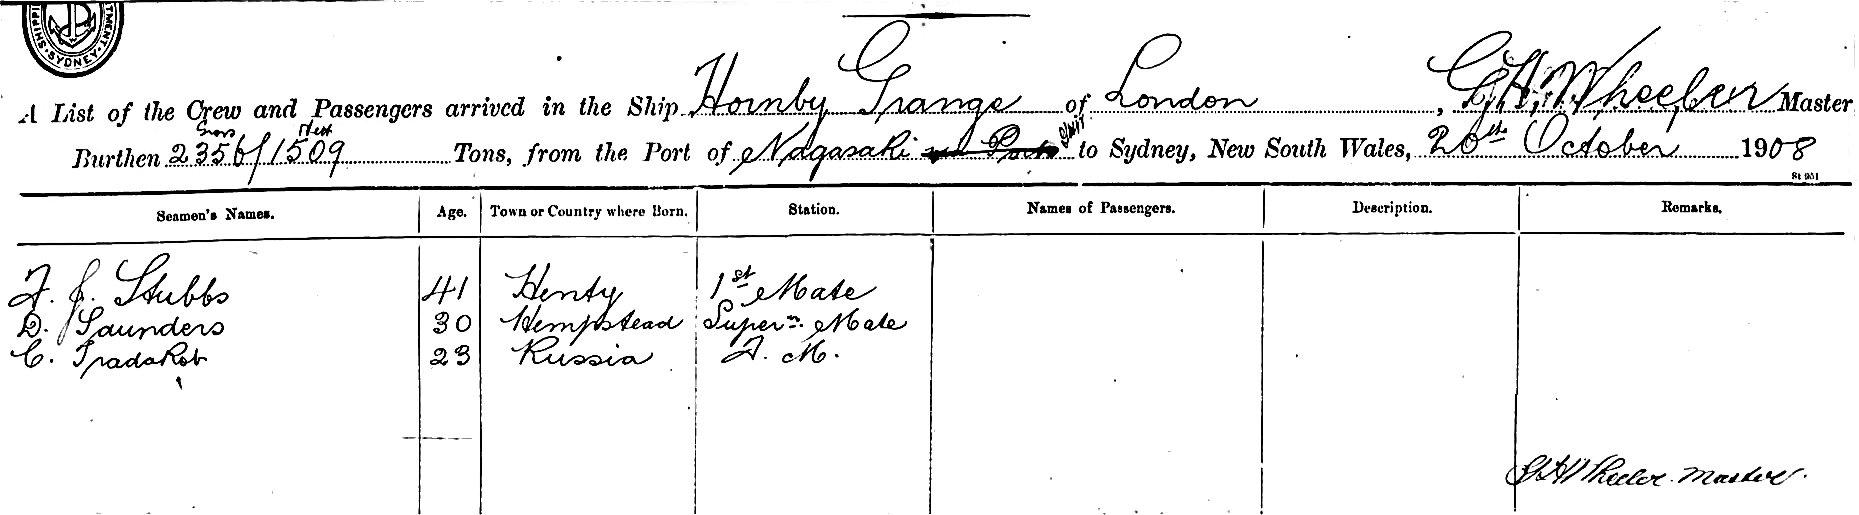 SHIPPING
SYDNEY
A List of the Crew and Passengers arrived in the Ship Hornby Grange of London, G. H. Wheeler Master
Gross Nett
Burthen 2356/1509 Tons, from the Port of Nagasaki to Sydney, New South Wales, 20th October 1908
St 951
Seamen's Names. Age. Town or Country where Born. Station. Names of Passengers. Description. Remarks.
F. J. Stubbs 41 Henty 1st Mate
D. Saunders 30 Hempstead Supern. Mate
C. 23 Russia F. M.
G H Wheeler. Master.